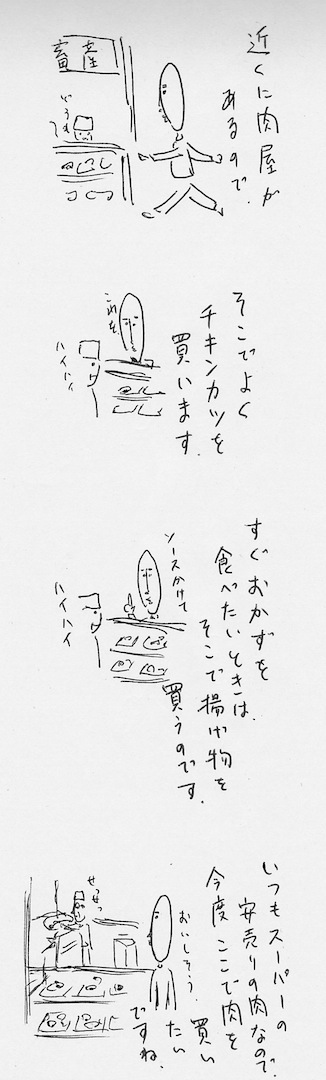 近くに肉屋が
あるので、
畜産
そこでよく
チキンカツを
買います。
これを
ハイハイ
すぐおかずを
食べたいときは、
そこで揚げ物を
買うのです。
ソースかけて
ハイハイ
いつもスーパーの
安売りの肉なので、
今度ここで肉を
買い
たい
ですね。
おいしそう。
せっせっ